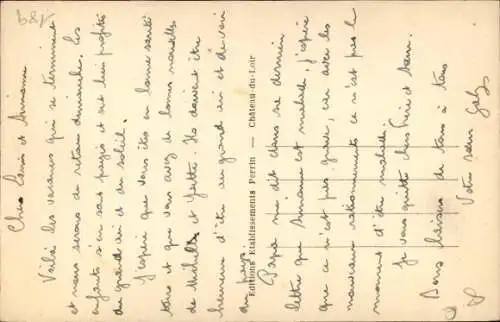 Chers Louis et Simonne
Voilà les vacances qui se terminent
et nous serons de retour dimanche. Les
enfants s'en sont payés et ont bien profité
du grand air et du soleil.
J'espère que vous êtes en bonne santé
tous et que vous avez de bonnes nouvelles
de Michelle et Yvette. Ils doivent être
heureux d'être au grand air et de voir
du pays.
Papa me dit dans sa dernière
lettre que Simonne est malade, j'espère
que ce n'est pas grave, car avec les
mauvais ravitaillements ce n'est pas le
moment d'être malade.
Je vous quitte chers Frère et Sœur.
Bons baisers de tous à tous
Votre sœur Gaby
Editions Etablissements Perrin — Château-du-Loir